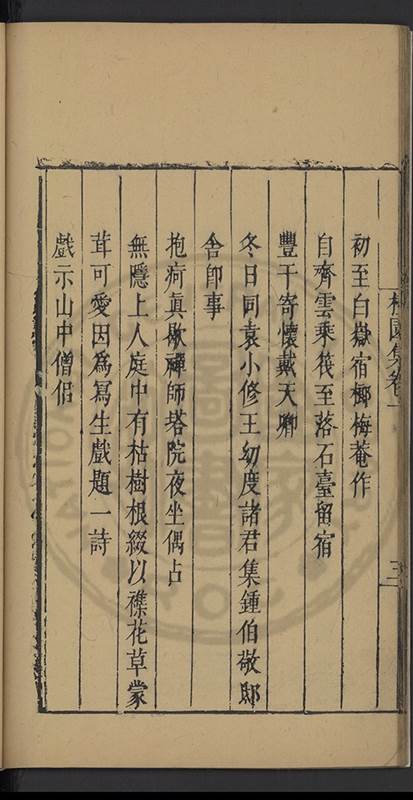 園集卷一
三
初至白嶽宿榔梅菴作
自齊雲乘筏至落石臺留宿
豐干寄懷戴天卿
冬日同袁小修王幼度諸君集鍾伯敬邸
舍即事
抱疴真歇禪師塔院夜坐偶占
無隱上人庭中有枯樹根綴以襍花草蒙
茸可愛因為寫生戲題一詩
戲示山中僧侶